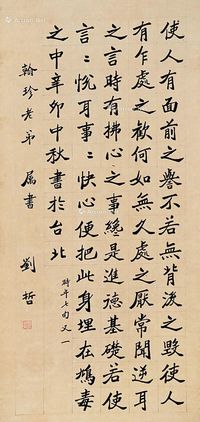 使人有面前之譽不若無背後之毀使人
有乍處之歡何如無久處之厭常聞逆耳
之言時有拂心之事纔是進德基礎若使
言〻悅耳事〻快心便把此身埋在鴆毒
之中辛卯中秋書於台北
時年七旬又一
翰珍老弟 屬書
劉哲